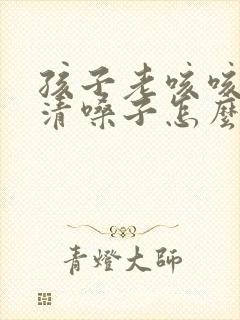 孩子老咳咳
清嗓子怎麼
青燈大師